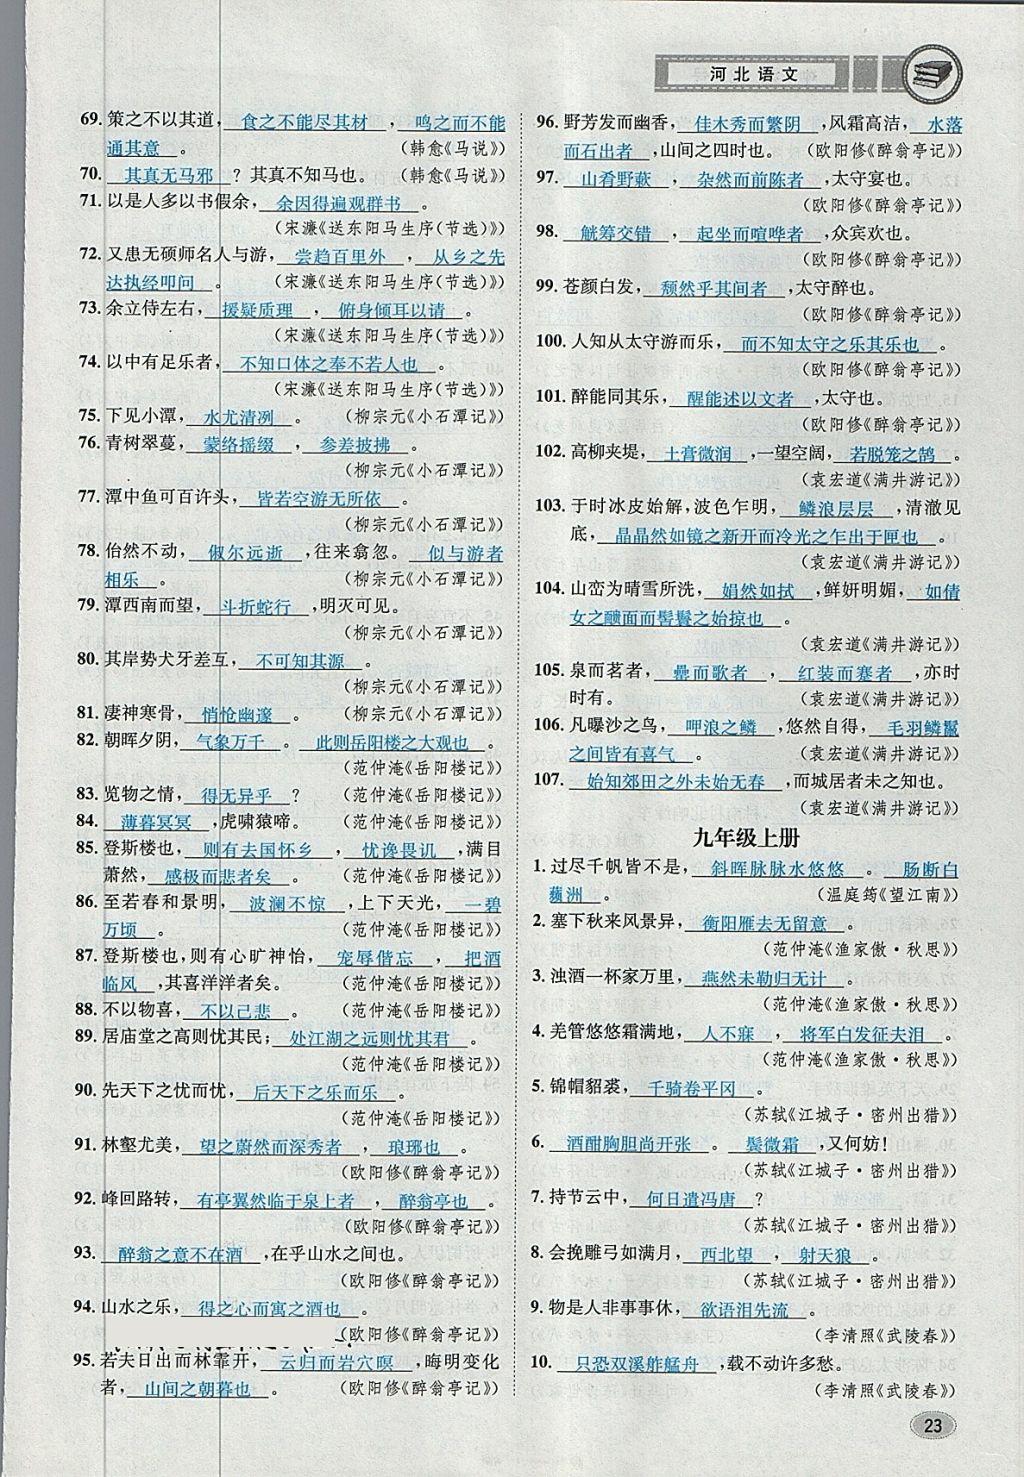 河北语文
69. 策之不以其道，食之不能尽其材，鸣之而不能
通其意。（韩愈《马说》）
70. 其真无马邪？其真不知马也。（韩愈《马说》）
71. 以是人多以书假余，余因得遍观群书。
（宋濂《送东阳马生序(节选)》）
72. 又患无硕师名人与游，尝趋百里外，从乡之先
达执经叩问。（宋濂《送东阳马生序(节选)》）
73. 余立侍左右，援疑质理，俯身倾耳以请。
（宋濂《送东阳马生序(节选)》）
74. 以中有足乐者，不知口体之奉不若人也。
（宋濂《送东阳马生序(节选)》）
75. 下见小潭，水尤清冽。（柳宗元《小石潭记》）
76. 青树翠蔓，蒙络摇缀，参差披拂。
（柳宗元《小石潭记》）
77. 潭中鱼可百许头，皆若空游无所依。
（柳宗元《小石潭记》）
78. 佁然不动，俶尔远逝，往来翕忽。似与游者
相乐。（柳宗元《小石潭记》）
79. 潭西南而望，斗折蛇行，明灭可见。
（柳宗元《小石潭记》）
80. 其岸势犬牙差互，不可知其源。
（柳宗元《小石潭记》）
81. 凄神寒骨，悄怆幽邃。（柳宗元《小石潭记》）
82. 朝晖夕阴，气象万千。此则岳阳楼之大观也。
（范仲淹《岳阳楼记》）
83. 览物之情，得无异乎？（范仲淹《岳阳楼记》）
84. 薄暮冥冥，虎啸猿啼。（范仲淹《岳阳楼记》）
85. 登斯楼也，则有去国怀乡，忧谗畏讥，满目
萧然，感极而悲者矣。（范仲淹《岳阳楼记》）
86. 至若春和景明，波澜不惊，上下天光，一碧
万顷。（范仲淹《岳阳楼记》）
87. 登斯楼也，则有心旷神怡，宠辱偕忘，把酒
临风，其喜洋洋者矣。（范仲淹《岳阳楼记》）
88. 不以物喜，不以己悲。（范仲淹《岳阳楼记》）
89. 居庙堂之高则忧其民；处江湖之远则忧其君。
（范仲淹《岳阳楼记》）
90. 先天下之忧而忧，后天下之乐而乐。
（范仲淹《岳阳楼记》）
91. 林壑尤美，望之蔚然而深秀者，琅琊也。
（欧阳修《醉翁亭记》）
92. 峰回路转，有亭翼然临于泉上者，醉翁亭也。
（欧阳修《醉翁亭记》）
93. 醉翁之意不在酒，在乎山水之间也。
（欧阳修《醉翁亭记》）
94. 山水之乐，得之心而寓之酒也。
（欧阳修《醉翁亭记》）
95. 若夫日出而林霏开，云归而岩穴暝，晦明变化
者，山间之朝暮也。（欧阳修《醉翁亭记》）
96. 野芳发而幽香，佳木秀而繁阴，风霜高洁，水落
而石出者，山间之四时也。（欧阳修《醉翁亭记》）
97. 山肴野蔌，杂然而前陈者，太守宴也。
（欧阳修《醉翁亭记》）
98. 觥筹交错，起坐而喧哗者，众宾欢也。
（欧阳修《醉翁亭记》）
99. 苍颜白发，颓然乎其间者，太守醉也。
（欧阳修《醉翁亭记》）
100. 人知从太守游而乐，而不知太守之乐其乐也。
（欧阳修《醉翁亭记》）
101. 醉能同其乐，醒能述以文者，太守也。
（欧阳修《醉翁亭记》）
102. 高柳夹堤，土膏微润，一望空阔，若脱笼之鹄。
（袁宏道《满井游记》）
103. 于时冰皮始解，波色乍明，鳞浪层层，清澈见
底，晶晶然如镜之新开而冷光之乍出于匣也。
（袁宏道《满井游记》）
104. 山峦为晴雪所洗，娟然如拭，鲜妍明媚，如倩
女之靧面而髻鬟之始掠也。
（袁宏道《满井游记》）
105. 泉而茗者，罍而歌者，红装而蹇者，亦时
时有。（袁宏道《满井游记》）
106. 凡曝沙之鸟，呷浪之鳞，悠然自得，毛羽鳞鬣
之间皆有喜气。（袁宏道《满井游记》）
107. 始知郊田之外未始无春，而城居者未之知也。
（袁宏道《满井游记》）
九年级上册
1. 过尽千帆皆不是，斜晖脉脉水悠悠。肠断白
蘋洲。（温庭筠《望江南》）
2. 塞下秋来风景异，衡阳雁去无留意。
（范仲淹《渔家傲·秋思》）
3. 浊酒一杯家万里，燕然未勒归无计。
（范仲淹《渔家傲·秋思》）
4. 羌管悠悠霜满地，人不寐，将军白发征夫泪。
（范仲淹《渔家傲·秋思》）
5. 锦帽貂裘，千骑卷平冈。
（苏轼《江城子·密州出猎》）
6. 酒酣胸胆尚开张。鬓微霜，又何妨！
（苏轼《江城子·密州出猎》）
7. 持节云中，何日遣冯唐？
（苏轼《江城子·密州出猎》）
8. 会挽雕弓如满月，西北望，射天狼。
（苏轼《江城子·密州出猎》）
9. 物是人非事事休，欲语泪先流。
（李清照《武陵春》）
10. 只恐双溪舴艋舟，载不动许多愁。
（李清照《武陵春》）
23